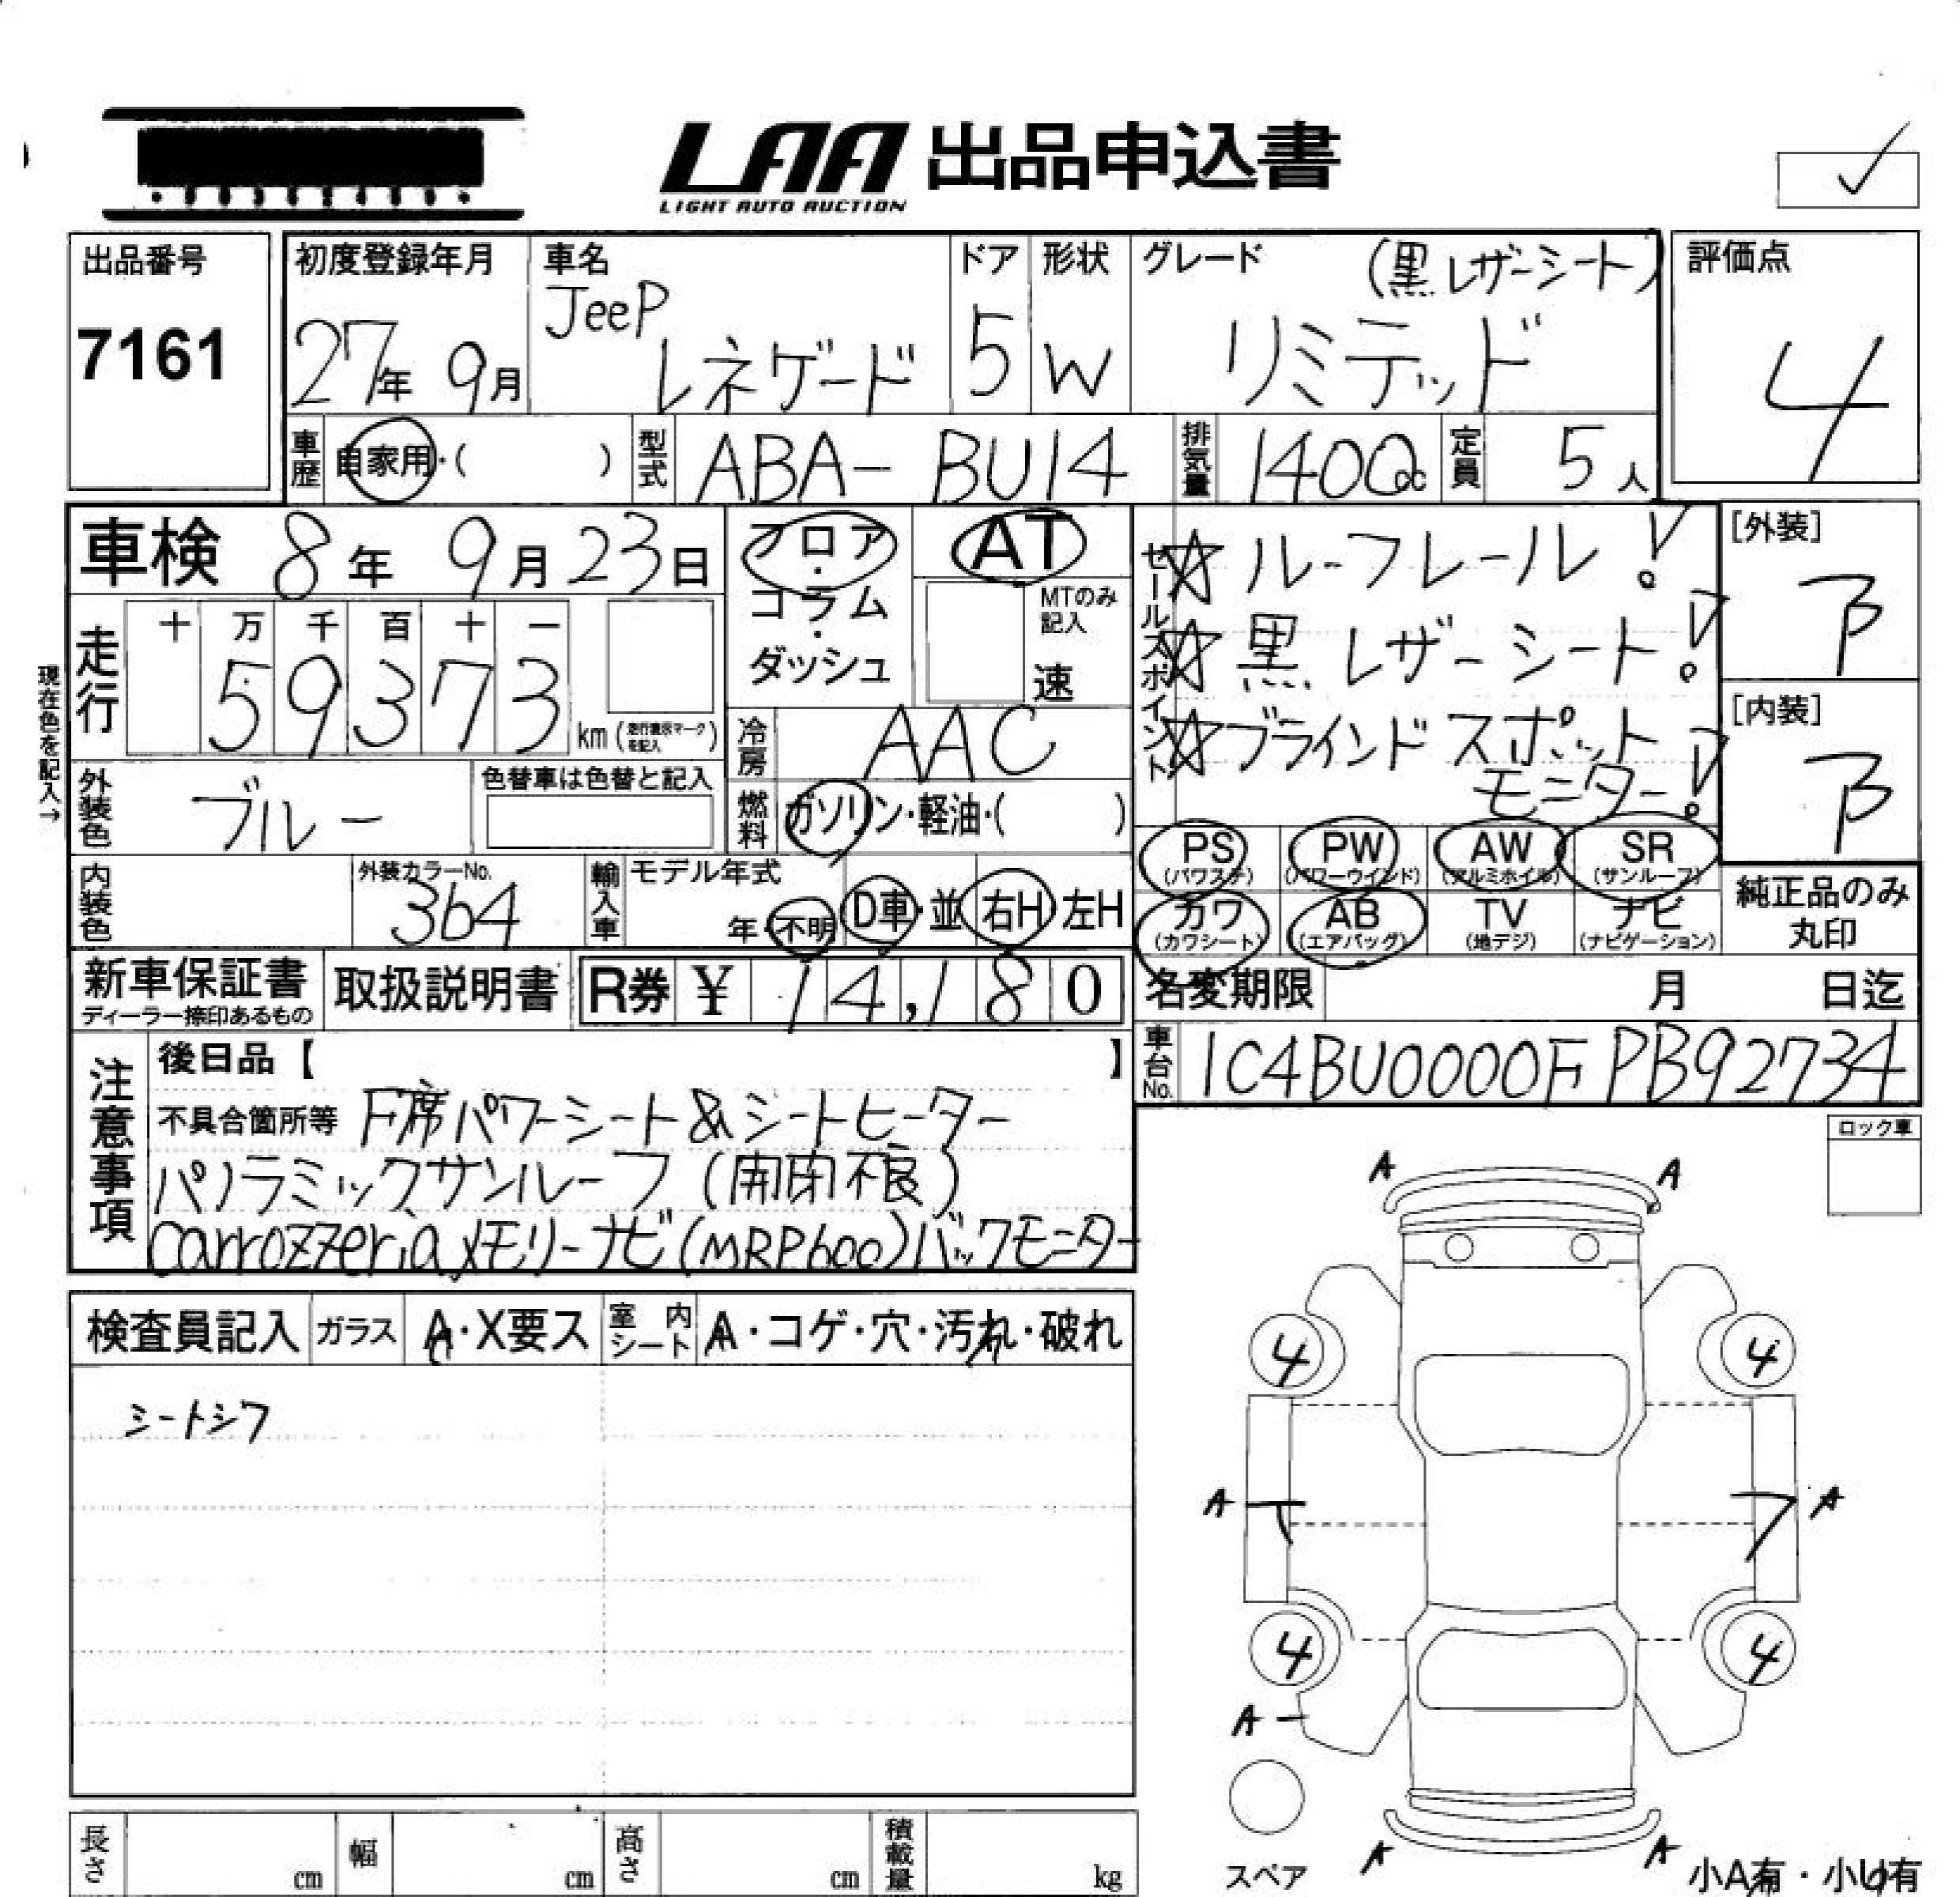 LAA 出品申込書
LIGHT AUTO AUCTION
出品番号
7161
初度登録年月
27年 9月
車名
Jeep
レネゲード
ドア
5
形状
W
グレード
(黒レザーシート)
リミテッド
評価点
4
車歴 自家用・( )
型式 ABA- BU14
排気量 1400cc
定員 5人
車検 8年 9月 23日
フロア・コラム・ダッシュ
AT
MTのみ記入
速
現在色を記入→
走行
十 万 千 百 十 一
5 9 3 7 3
km
冷房 AAC
外装色 ブルー
色替車は色替と記入
燃料 ガソリン・軽油・( )
内装色
外装カラーNo.
364
輸入車
モデル年式
年・不明
D車・並
右H 左H
セールスポイント
☆ルーフレール!
☆黒レザーシート!
☆ブラインドスポット
モニター!
[外装]
B
[内装]
B
PS
(パワステ)
PW
(パワーウインド)
AW
(アルミホイル)
SR
(サンルーフ)
カワ
(カワシート)
AB
(エアバッグ)
TV
(地デジ)
ナビ
(ナビゲーション)
純正品のみ
丸印
新車保証書
ディーラー捺印あるもの
取扱説明書
R券 ¥ 14,180
名変期限 月 日迄
車台No. 1C4BU0000FPB92734
注意事項
後日品【 】
不具合箇所等 F席パワーシート&シートヒーター
パノラミックサンルーフ(開閉不良)
carrozzeriaメモリーナビ(MRP600)バックモニター
ロック車
検査員記入
ガラス A・X要ス
室内シート A・コゲ・穴・汚れ・破れ
シートシワ
A A
4 4
A A
4 4
A
A A
スペア
小A有・小U有
長さ cm
幅 cm
高さ cm
積載量 kg